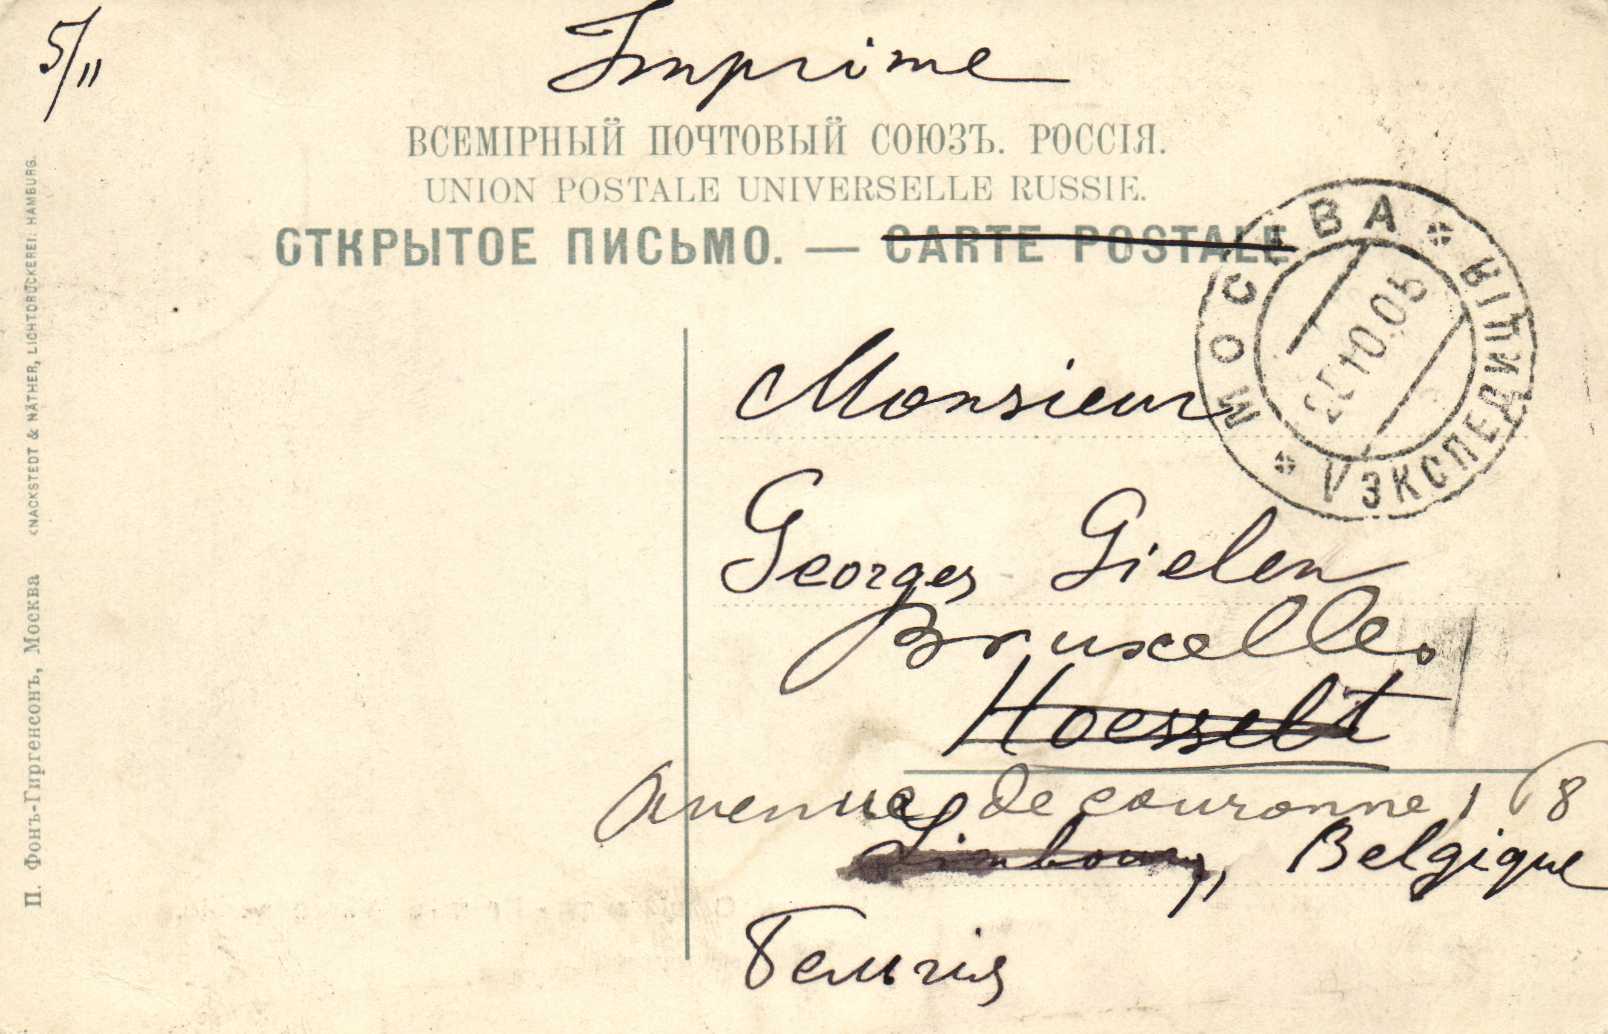 5/11
Imprime
ВСЕМІРНЫЙ ПОЧТОВЫЙ СОЮЗЪ. РОССІЯ.
UNION POSTALE UNIVERSELLE RUSSIE.
ОТКРЫТОЕ ПИСЬМО. — CARTE POSTALE
МОСКВА
V ЭКСПЕДИЦІЯ
10.05
Monsieur
Georges Gielen
Bruxelles
Hoesselt
Avenue de couronne, 168
Limbourg, Belgique
Бельгія
П. Фонъ-Гиргенсонъ, Москва
KNACKSTEDT & NÄTHER, LICHTDRUCKEREI, HAMBURG.